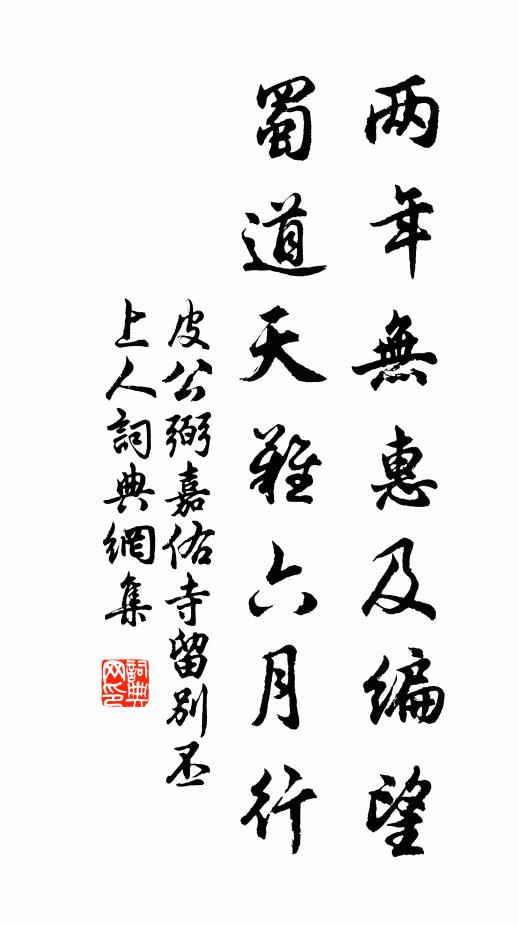 两年無惠及编望
蜀道天難六月行
皮公弼嘉佑寺留別丕
上人詞典網集
詞典网印